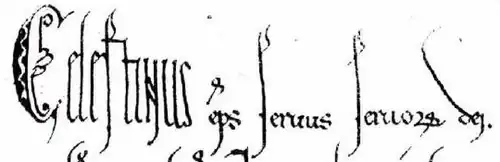 Celestinus eps seruus seruoꝝ dei.